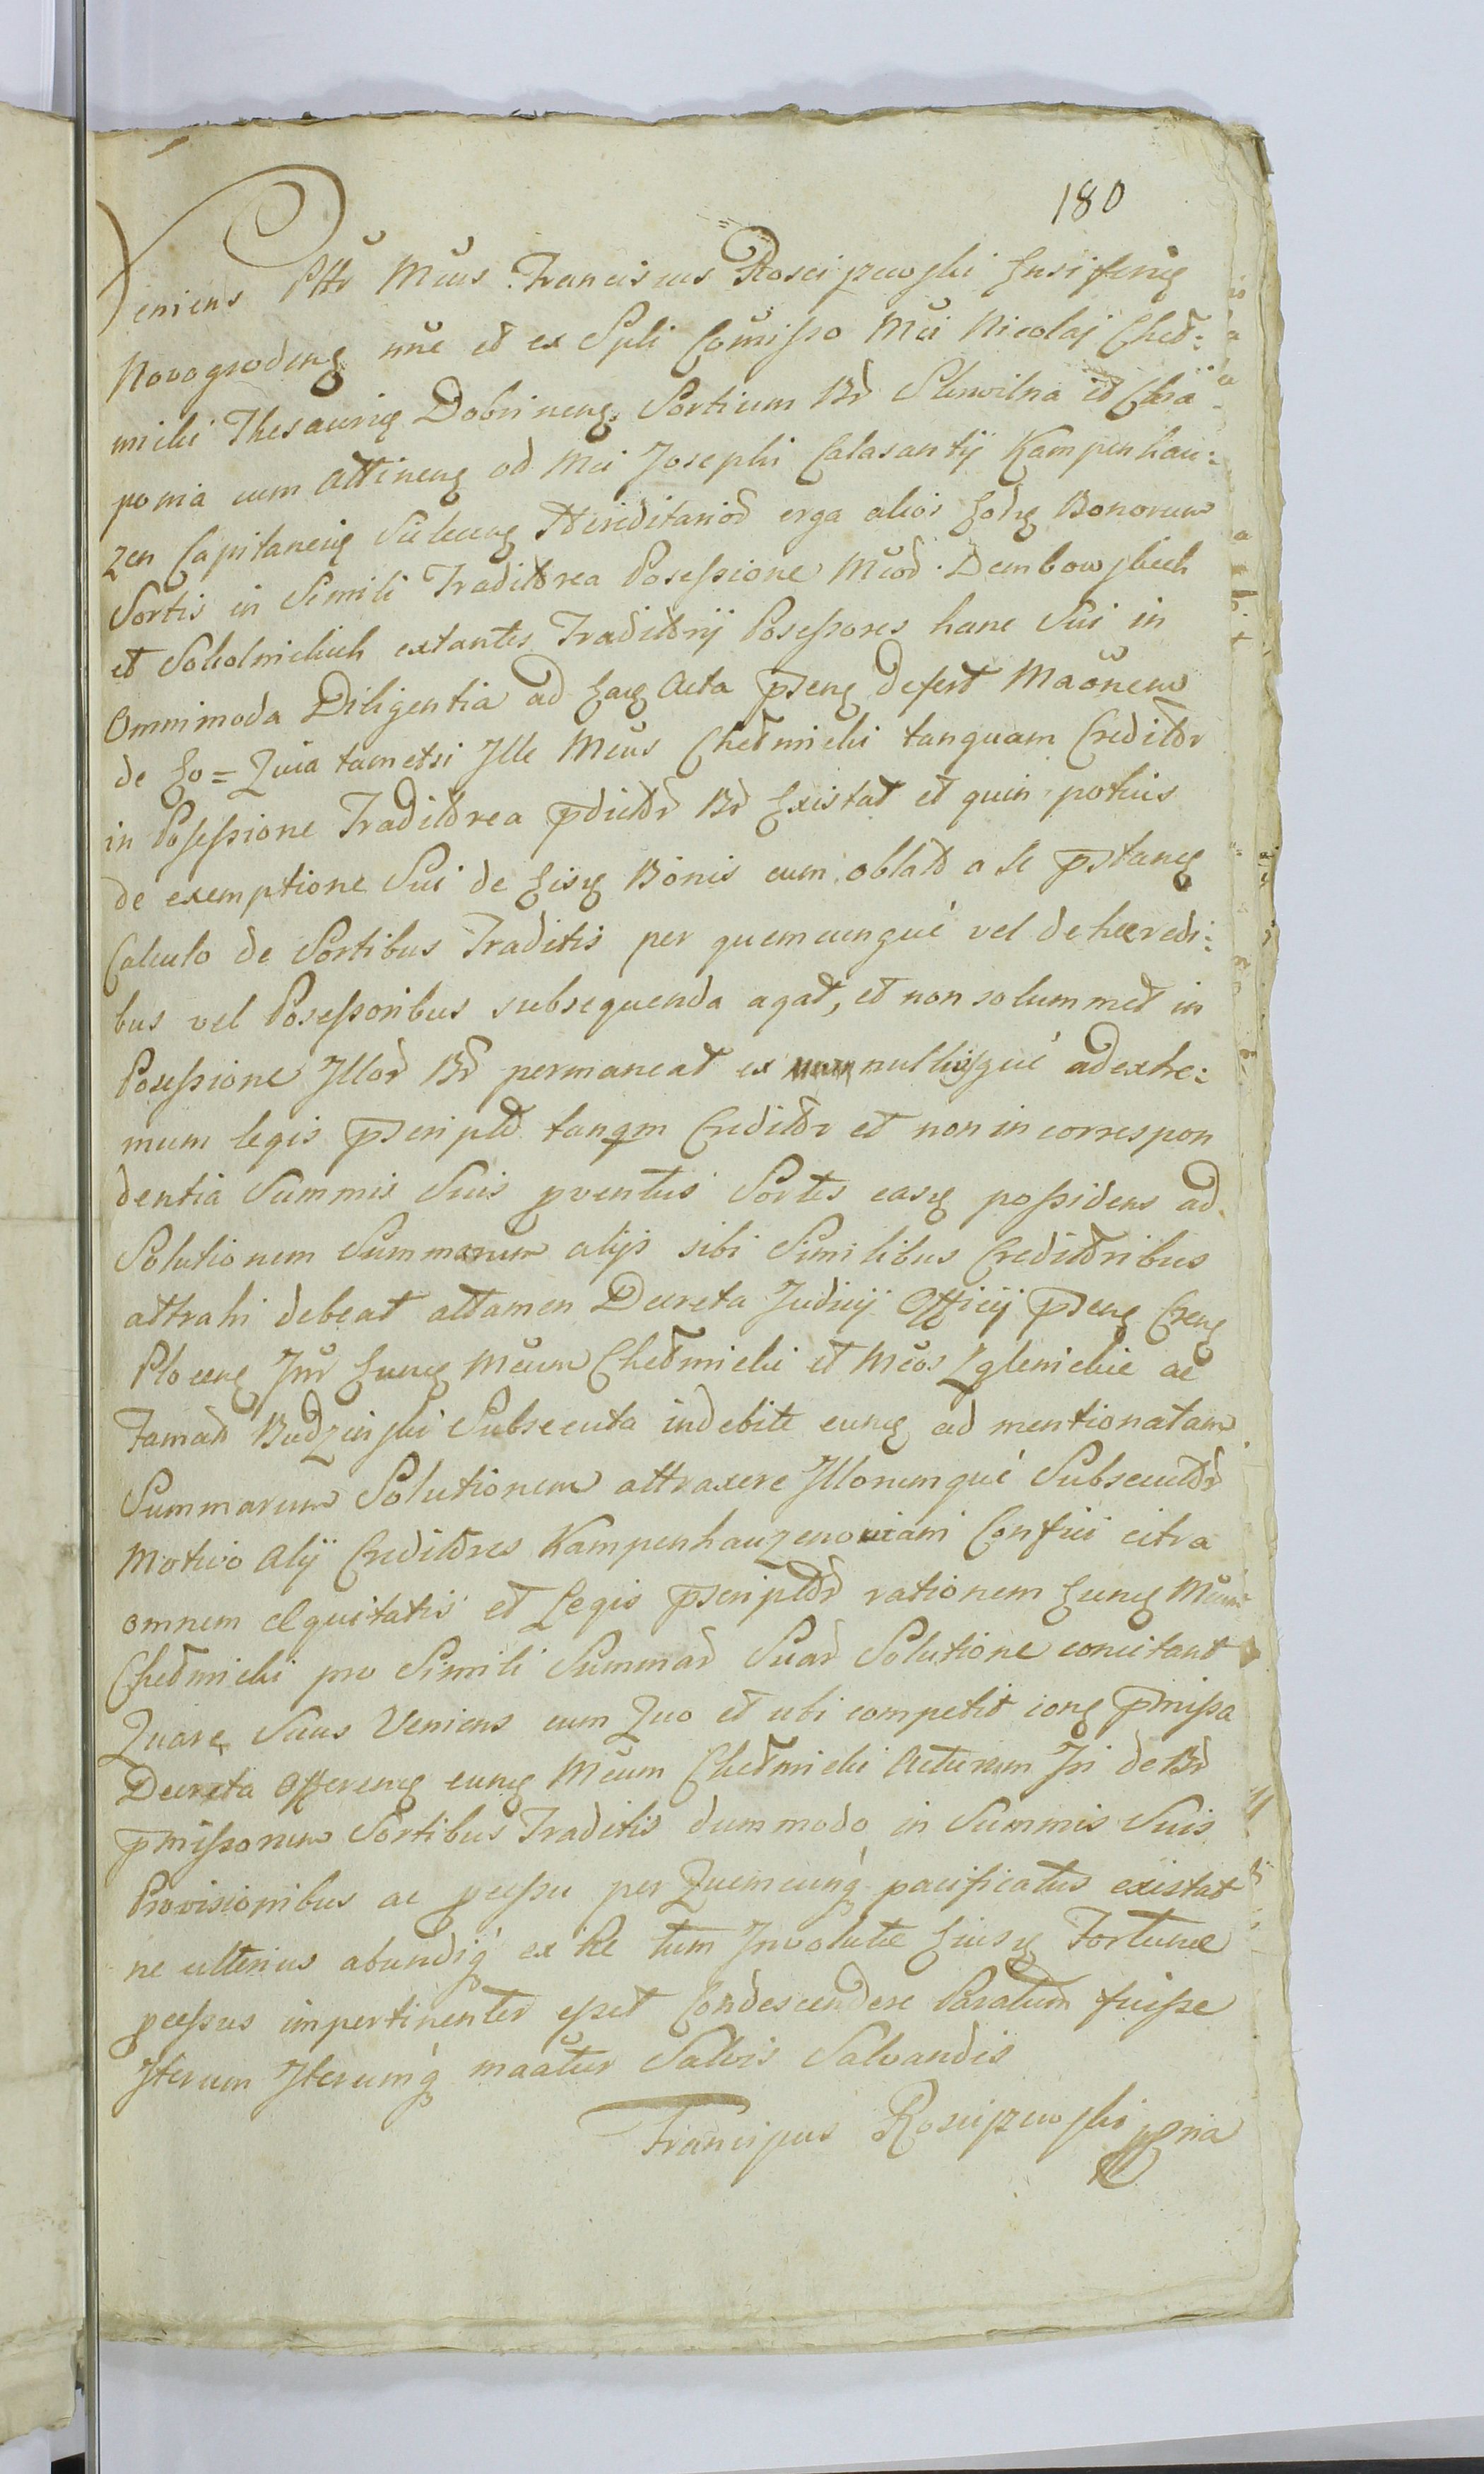 180
Veniens Pttr Mcus Franciscus Rosciszewski Ensiferiq
Novogrodenq nne et ex Spli Comisso Mci Nicolaj Cheł:
micki Thesauriq Dobrinenq Sortium Br Skwilna et Chra
ponia cum attinenq od Mci Josephi Calasantij Kampenhau:
zen Capitaneiq Hereditariod erga alios Eodq Bonorum
Sortis in Simili Traditorea Posessione Mcod. Dembowskich
et Sokolnickich extantes Traditorij Posessores hanc Sui in
Omnimoda Diligentia ad Eaq Acta psenq defert Maonem
de Eo = Quia tametsi Ille Mcus Chełmicki tanquam Creditor
in Posessione Traditorea pdictor Br Existat et quin potius
de exemptione Sui de Eisq Bonis cum oblato a se pstanq
Calculo de Sortibus Traditis per quemcunque vel de hæredi:
bus vel Posessoribus subsequenda agat, et non solummet in
Posessione Illor Br permaneat ex nullisque ad exhe:
mum legis pscripto tanqm Creditor et non in correspon
dentia Summis Suis pventus Sortes easq possidens ad
Solutionem Summarum alijs sibi Similibus Creditoribus
attrahi debeat attamen Decreta Judicij Officij psenq Crenq
Plocenq Inr Eunq Mcum Chełmicki et Mcos Zglenickie ac
Famad Budzinski Subsecuta indebite eunq ad mentionatam
Summarum Solutionem attraxere Illorumque Subsecutor
Motivo Alij Creditores Kampenhauzenoviani Confisi citra
omnem Æquitatis et Legis pscriptor rationem Eunq Mcum
Chełmicki pro Simili Summar Suar Solutione concitant
Quare Suus Veniens cum Quo et ubi competit ionq pmissa
Decreta Offerenq eunq Mcum Chełmicki Acturum Iri de Br
pmissorum Sortibus Traditis dummodo in Summis Suis
Provisionibus ac pcessu per Quemcunq pacificatus existat
ne ulterius abundiq ex Re tum Involutæ Eiusq Fortunæ
pcessus impertinenter esset Condescendere Paratum fuisse
Iterum Iterumq maatur Salvis Salvandis
Franciscus Rosciszewski mpria